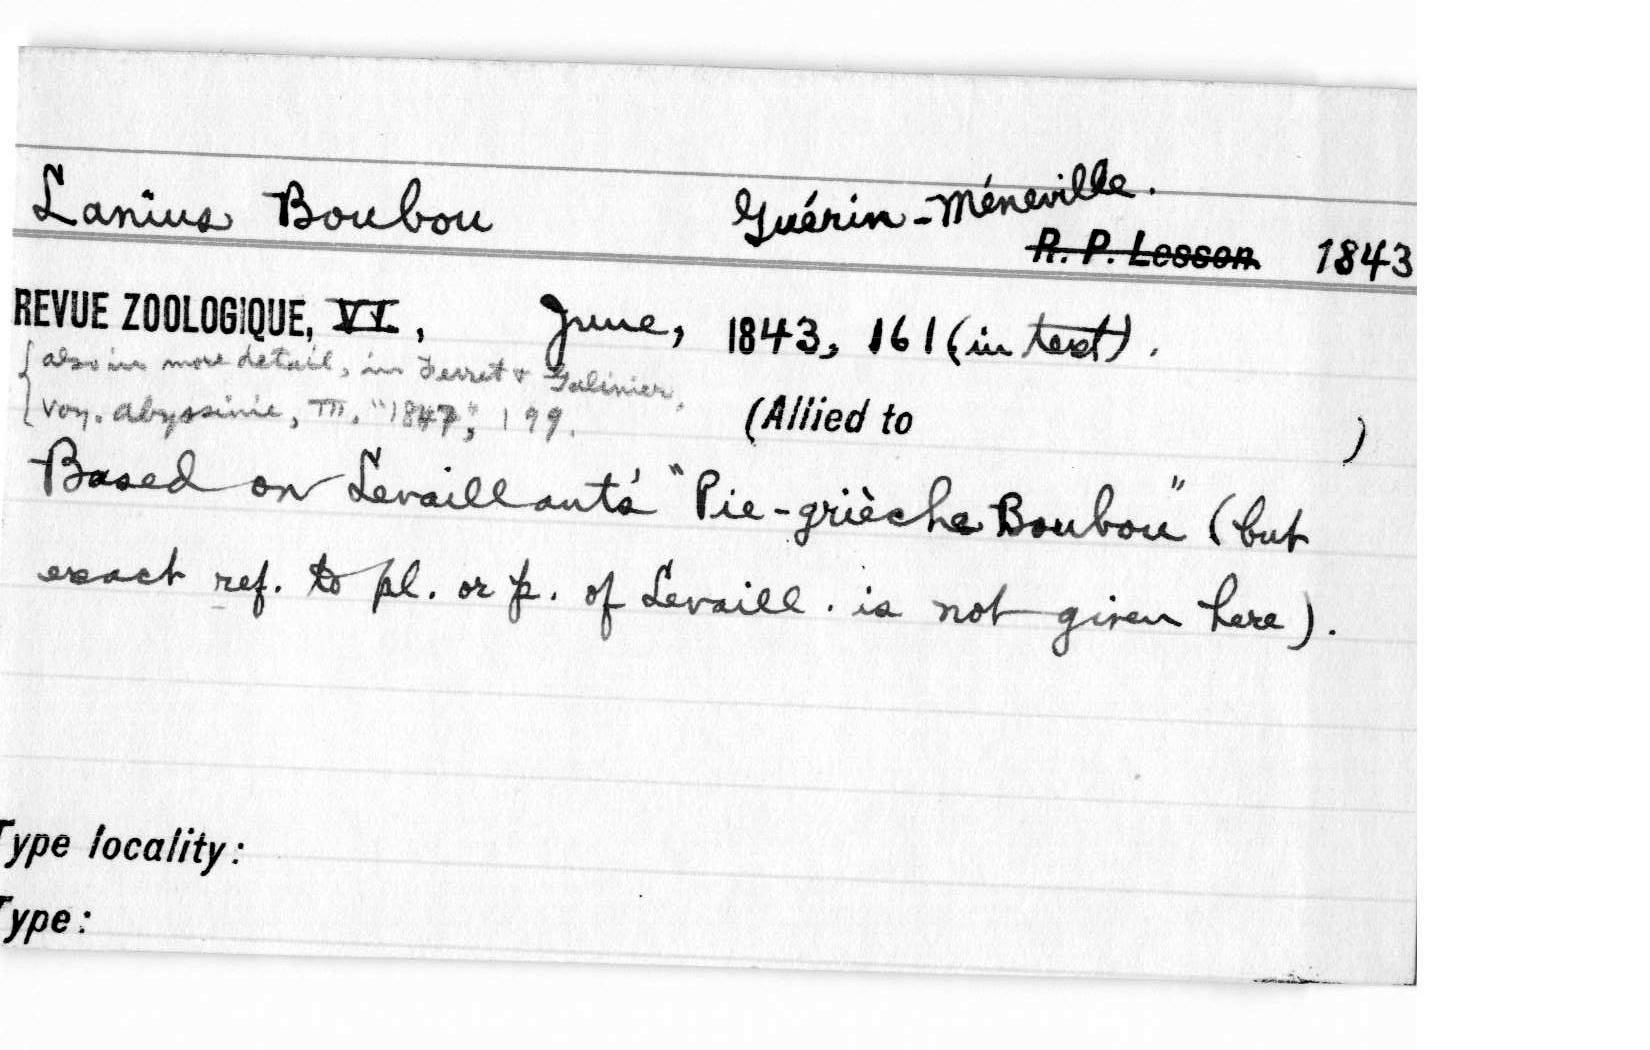 Lanius Boubou Guérin-Méneville.
R. P. Lesson 1843
REVUE ZOOLOGIQUE, VI, June, 1843, 161 (in text).
{also in more detail, in Ferret & Galinier,
{Voy. Abyssinie, III, "1847", 199.
(Allied to )
Based on Levaillant's "Pie-grièche Boubou" (but
exact ref. to pl. or p. of Levaill. is not given here).
Type locality:
Type: